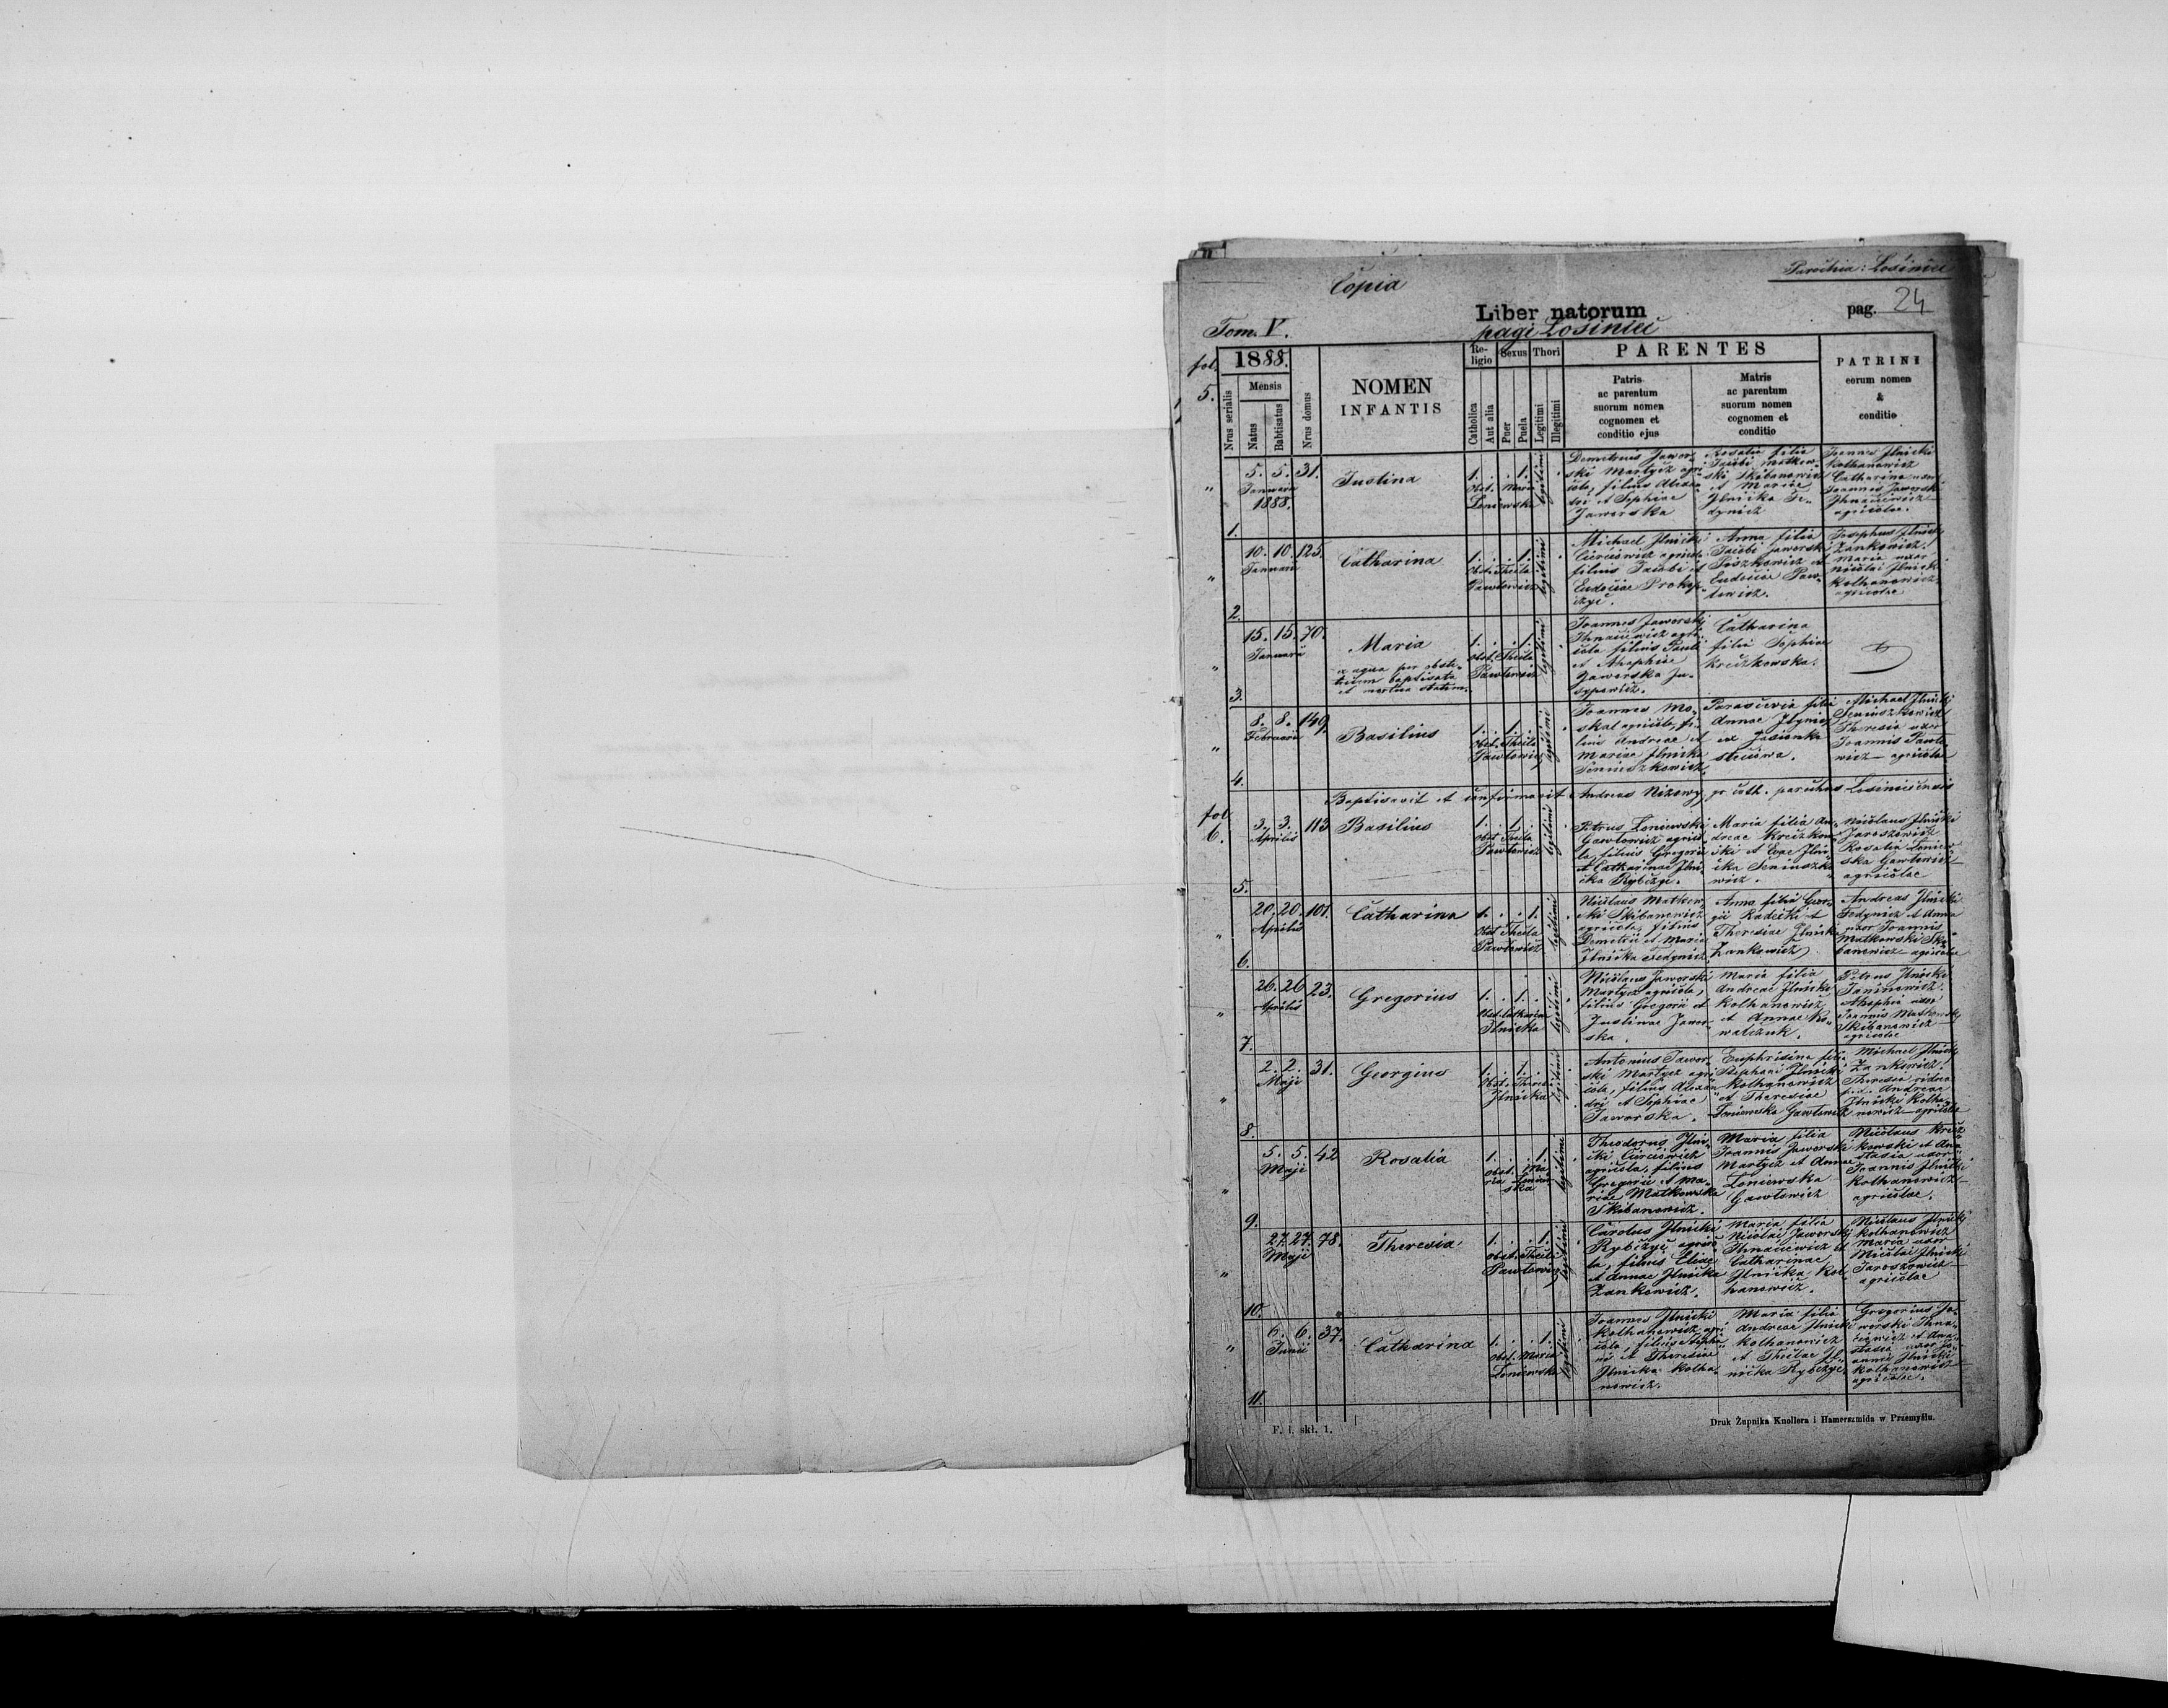 Parochia: Łosiniec
Copia
Liber natorum
pag. 24
Tom. V.
pagi Łosiniec
fol. 5.
1888.
Mensis
Nrus serialis
Natus
Babtisatus
Nrus domus
NOMEN
INFANTIS
Religio
Catholica
Aut alia
Sexus
Puer
Puela
Thori
Legitimi
Illegitimi
PARENTES
Patris
ac parentum
suorum nomen
cognomen et
conditio ejus
Matris
ac parentum
suorum nomen
cognomen et
conditio
PATRINI
eorum nomen
&
conditio
1.
5. 5. 31.
Januarii
1888.
Justina
1. . . 1. legitimi .
Obst. Maria
Łoniewska
Demetrius Jawor-
ski Martycz agri-
cola, filius Alexan
dri et Sophiae
Jaworska
Rosalia filia
Jacobi Matkow-
ski Skibanowicz
et Mariae
Ilnicka Fe-
dynicz
Joannes Ilnicki
Kolhanowicz
Catharina uxor
Joannis Jaworski
Ihnaciewicz
agricolae.
2.
10. 10. 125.
Januarii
Catharina
1. . . 1. legitimi .
Obst. Thecla
Pawłowicz
Michael Ilnicki
Cierciewicz agricola
filius Jacobi et
Eudociae Prokop-
czyc.
Anna filia
Jacobi Jaworski
Eudociae Paw-
łowicz.
Josephus Ilnicki
Zankowicz.
Maria uxor
Nicolai Ilnicki
Kolhanowicz
agricolae
3.
15. 15. 70.
Januarii
Maria
ex aqua per obste-
tricem baptisata
et mortua statim.
1. . . 1. legitimi .
Obst. Thecla
Pawłowicz
Joannes Jaworski
Ihnaciewicz agri-
cola filius Pauli
et Ahaphiae
Jaworska Ju-
sypowicz.
Catharina
filia Sophiae
Kreczkowska.
4.
8. 8. 149.
Februarii
Basilius
1. . 1. . legitimi .
Obst. Thecla
Pawłowicz
Joannes Mo-
skal agricola, fi-
lius Andreae et
Mariae Ilnicka
Seniuszkowicz
Parascevia filia
Annae Ilynicz
ex Jasionka
steciowa.
Michael Ilnicki
Seniuszkowicz
Theresia uxor
Joannis Pawło
wicz agricolae
Baptisavit et confirmavit Andreas Nizowy, gr. cath. parochus Łosiniecensis
fol. 6.
5.
3. 3. 113
Aprilis
Basilius
1. . 1. . legitimi .
Obst. Thecla
Pawłowicz
Petrus Łoniewski
Gawłowicz agrico
la, filius Gregorii
et Catharinae Ilni-
cka Rybczyc.
Maria filia An-
dreae Kreczkow-
ski et Evae Ilni-
cka Seniuszko
wicz.
Nicolaus Ilnicki
Jaroszowicz
Rosalia Łoniew-
ska Gawłowicz
agricolae
6.
20. 20. 101.
Aprilis
Catharina
1. . . 1. legitimi
Obst. Thecla
Pawłowicz
Nicolaus Matkow-
ski Skibanowicz
agricola, filius
Demetrii et Maria
Ilnicka Fedynicz
Anna filia Geor-
gii Radecki et
Theresiae Ilnicka
Zankowicz
Andreas Ilnicki
Fedynicz et Anna
uxor Joannis
Matkowski Ski-
banowicz agricolae
7.
26. 26 23.
Aprilis
Gregorius
1. . 1. . legitimi .
Obst. Catharina
Ilnicka
Nicolaus Jaworski
Martycz agricola,
filius Gregorii et
Justinae Jawor-
ska.
Maria filia
Andreae Ilnicki
Kolhanowicz
et Annae Ko-
walczuk.
Petrus Ilnicki
Ahaphia uxor
Joannis Matkowski
Skibanowicz
agricolae
8.
2. 2. 31.
Maji
Georgius
1. . 1. . legitimi .
Obst. Theresia
Ilnicka
Antonius Jawor-
ski Martycz agri
cola, filius Alexan
dri et Sophiae
Jaworska.
Euphrisina filia
Stephani Ilnicki
Kolhanowicz
et Theresiae
Łoniewska Gawłowicz
Michael Ilnicki
Zankowicz.
Theresia vidua
p.d. Andreae
Ilnicki Kolha-
nowicz agricolae
9.
5. 5. 42
Maji
Rosalia
1. . . 1. legitimi .
obst. Ma
ria Łoniew-
ska
Theodorus Ilni-
cki Cierciewicz
agricola, filius
Gregorii et Ma-
riae Matkowska
Skibanowicz.
Maria filia
Joannis Jaworski
Martycz et Annae
Łoniewska
Gawłowicz
Nicolaus Krecz
kowski et Ana
stasia uxor
Joannis Ilnicki
Kolhanowicz
agricolae.
10.
27. 27. 78.
Maji
Theresia
1. . . 1. legitimi
obst. Thecla
Pawłowicz
Carolus Ilnicki
Rybczyc agrico
la, filius Eliae
et Annae Ilnicka
Zankowicz.
Maria filia
Nicolai Jaworski
Ihnaciewicz et
Catharinae
Ilnicka Kol
hanowicz.
Nicolaus Ilnicki
Kolhanowicz
Maria uxor
Nicolai Ilnicki
Jaroszowicz
agricolae
11.
6. 6. 37.
Junii
Catharina
1. . . 1. legitimi .
obst. Maria
Łoniewska
Joannes Ilnicki
Kolhanowicz agri
cola, filius Stepha
ni et Theresiae
Ilnicka Kolha-
nowicz.
Maria filia
Andreae Ilnicki
Kolhanowicz
et Theclae Il-
nicka Rybczyc
Gregorius Ja-
worski Ihna-
ciewicz et Ana-
stasia uxor Jo-
annis Ilnicki
Kolhanowicz
agricolae.
F. l. skł. 1.
Druk Żupnika Knollera i Hamerszmida w Przemyślu.